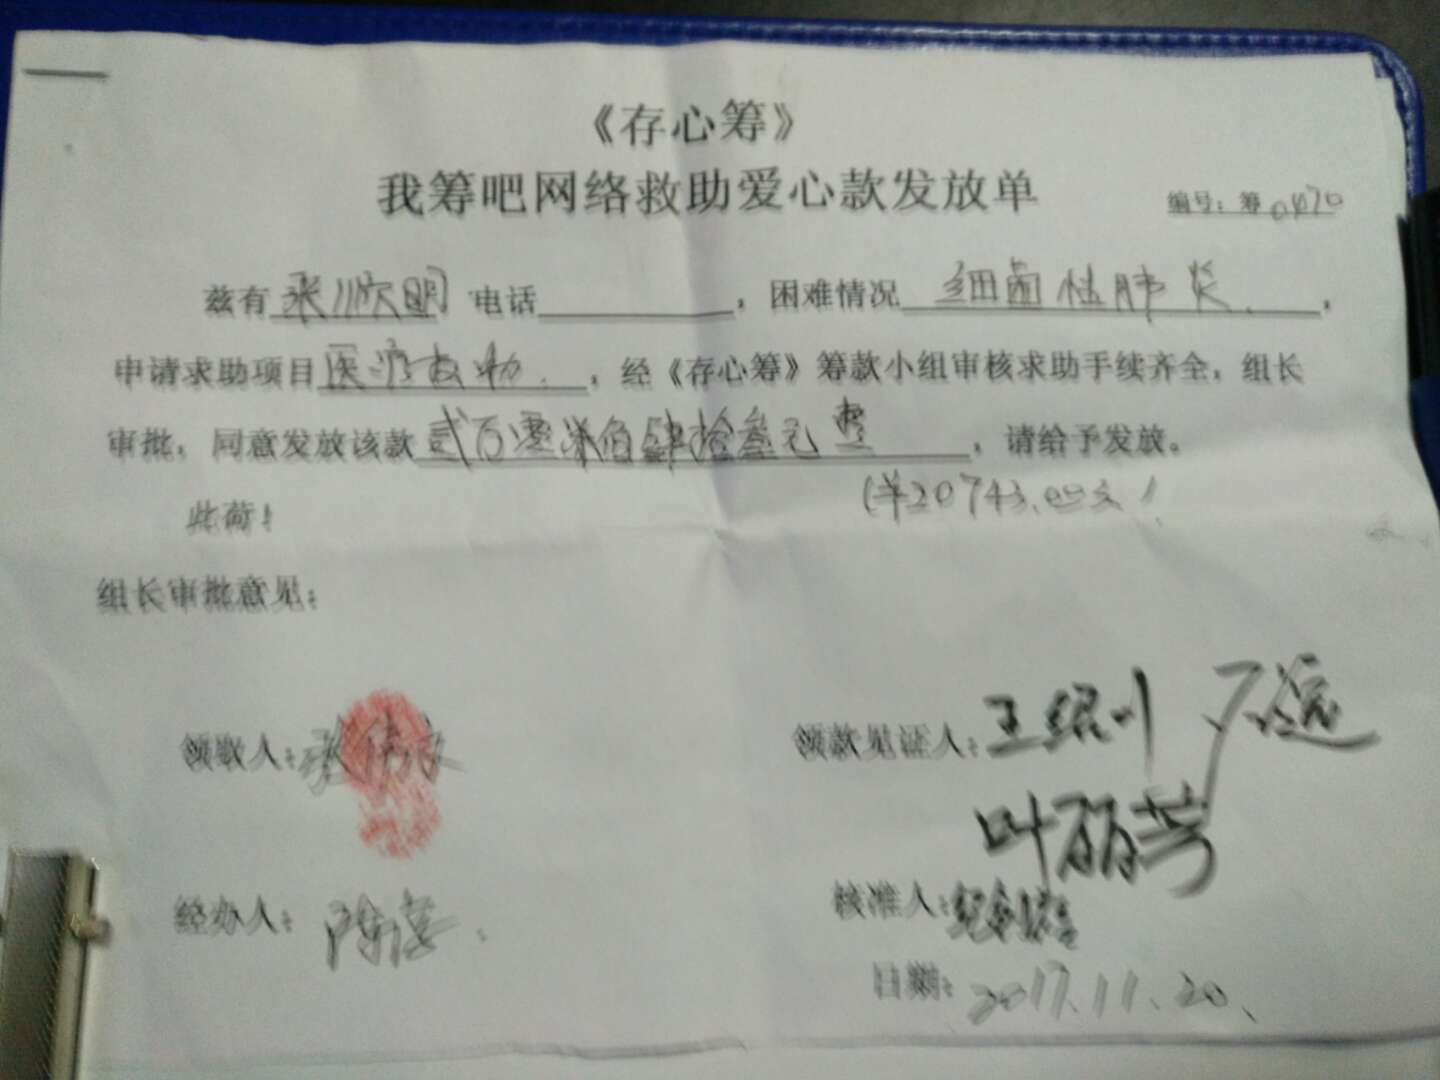 《存心筹》
我筹吧网络救助爱心款发放单
编号：筹0470
兹有张顺明 电话，困难情况细菌性肺炎.，
申请求助项目医疗救助.，经《存心筹》筹款小组审核求助手续齐全，组长
审批，同意发放该款贰万零柒佰肆拾叁元整，请给予发放。
(¥20743.
此荷！
组长审批意见：
领取人：张
领款见证人：王绍川
叶丽芳
经办人：陈
核准人：
日期：2017.11.20.